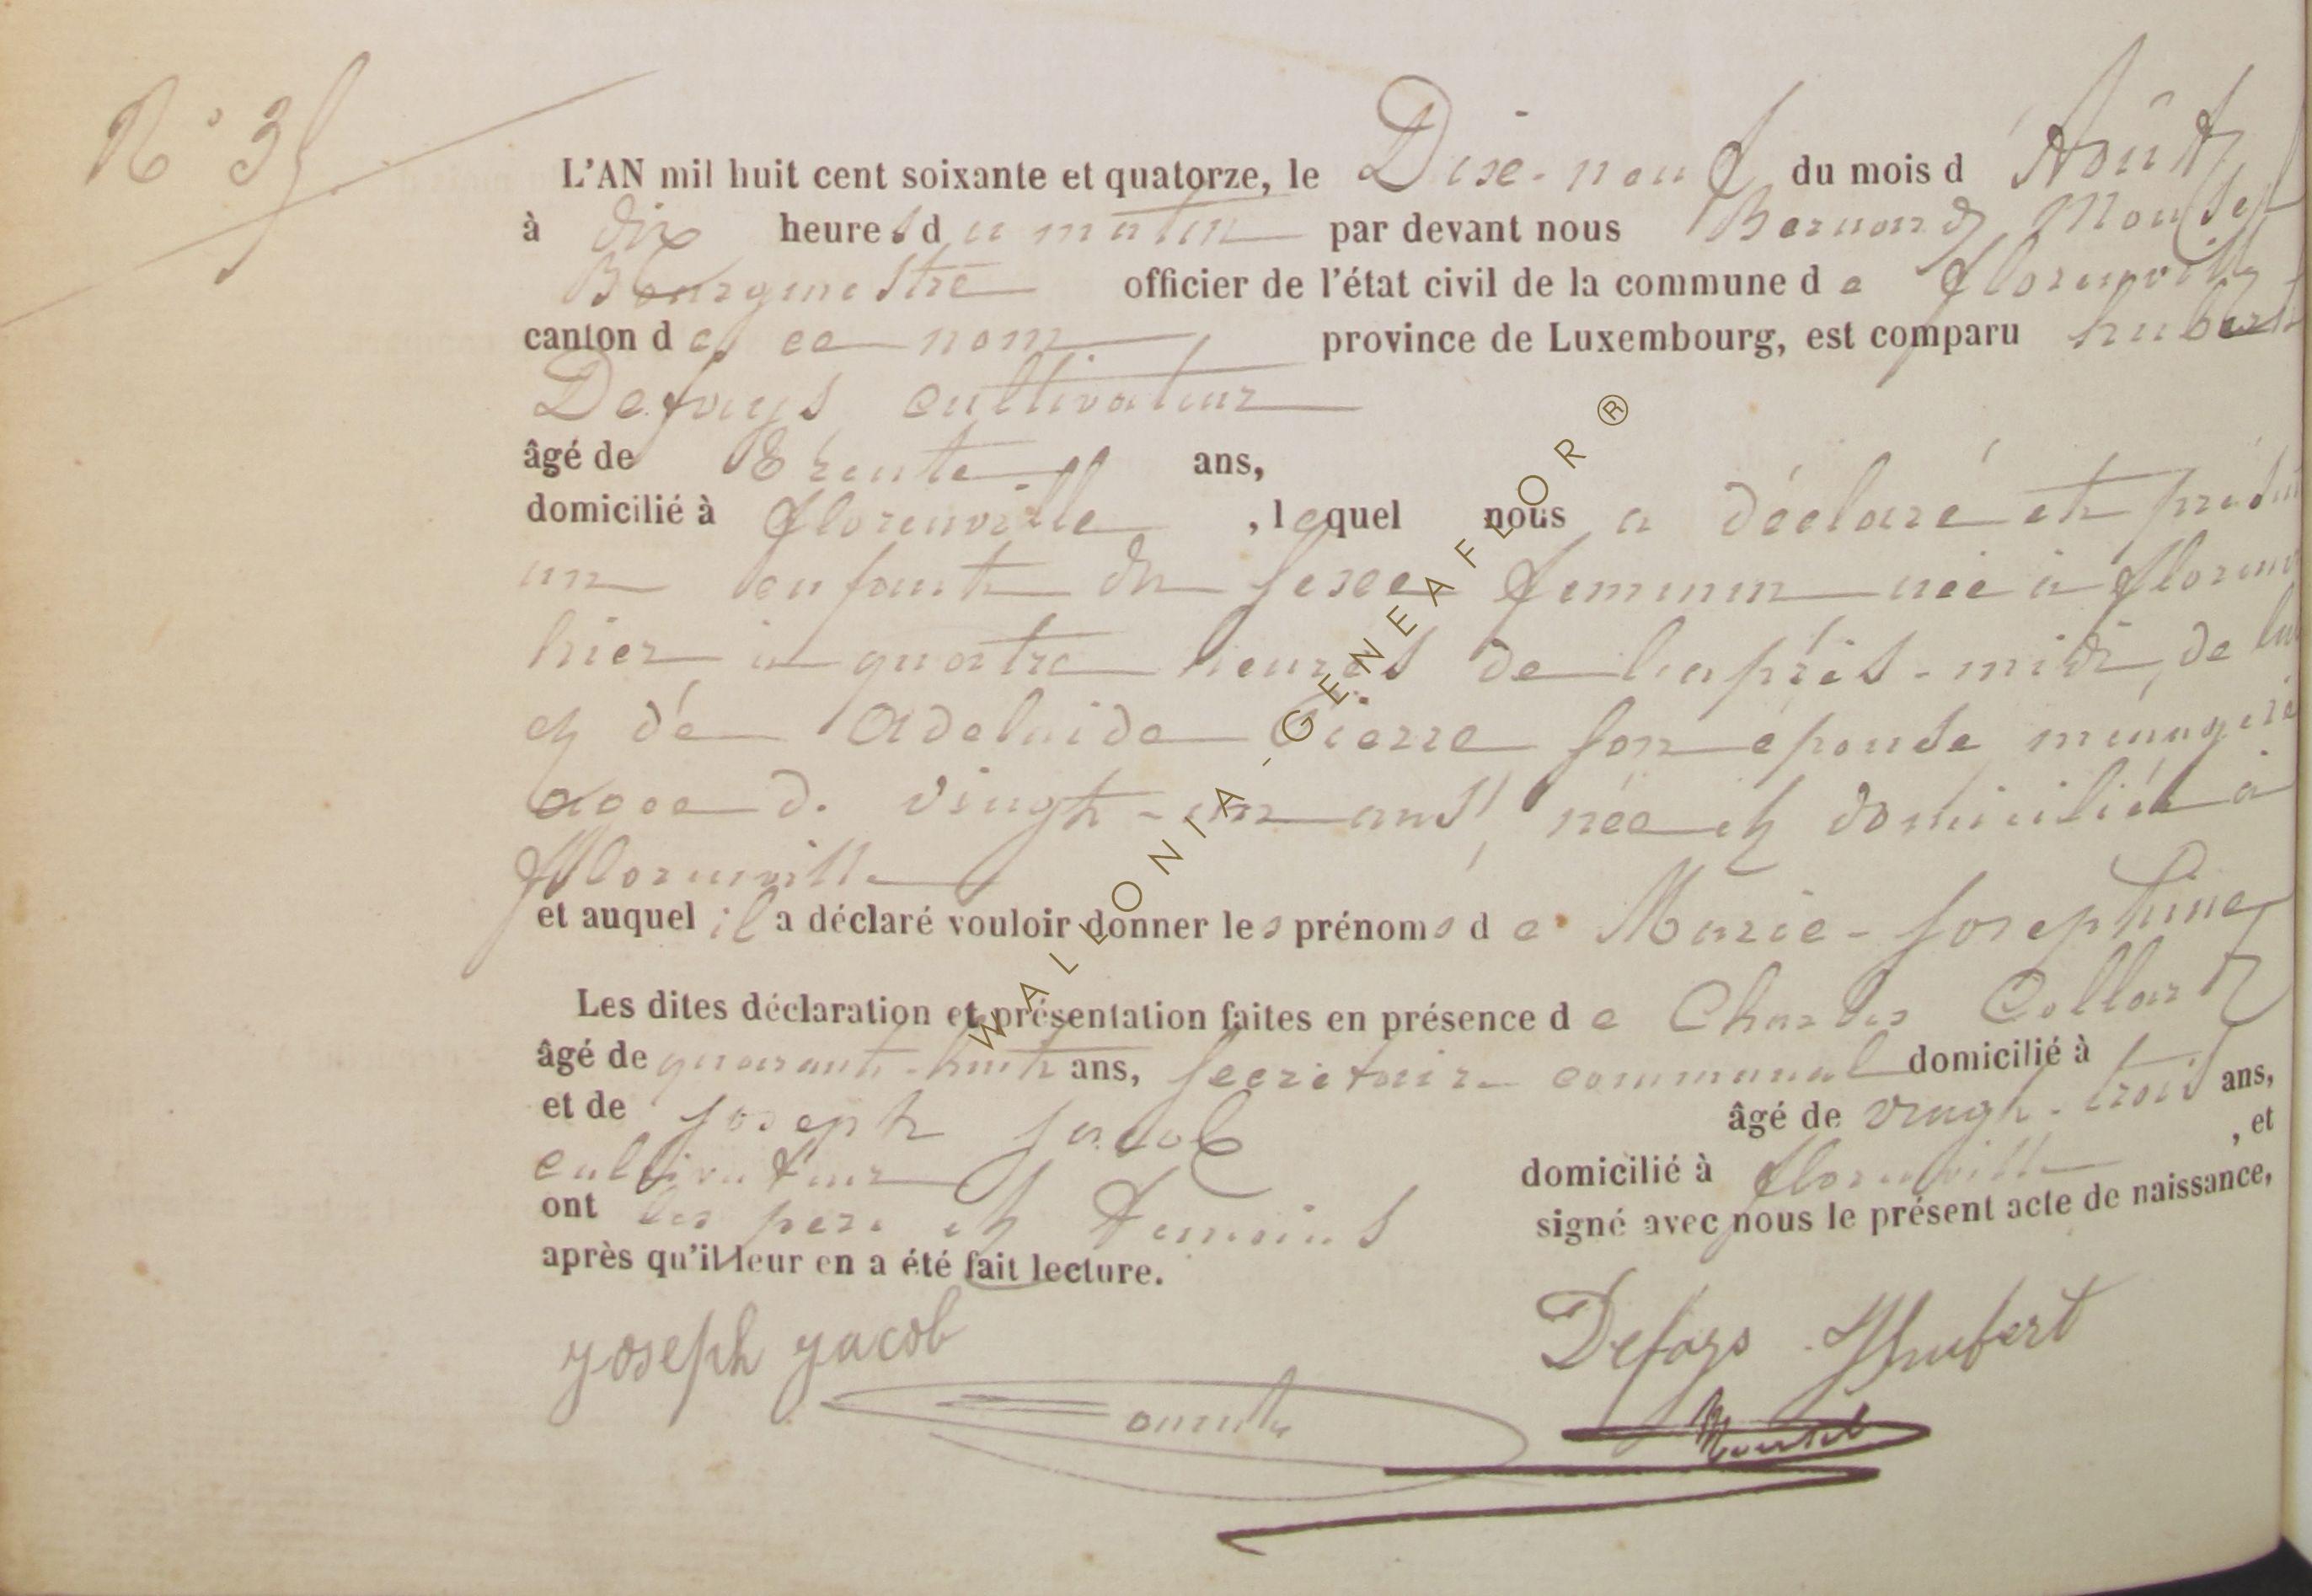 N° 35
L'AN mil huit cent soixante et quatorze, le Dixe-neuf du mois d'Août
à dix heures du matin par devant nous Bernard Mousel
Bourgmestre officier de l'état civil de la commune de florenville
canton de ce nom province de Luxembourg, est comparu hubert
Defoys cultivateur
âgé de trente ans,
domicilié à florenville, lequel nous a déclaré et présen
un enfant du sexe feminin née à floren
hier à quatre heures de l'après-midi, de lui
et dé Adelaide Pierre son épouse ménagère
agee de vingt-un ans, née et domiciliée à
florenville
et auquel il a déclaré vouloir donner les prénoms de Marie-Josephine
Les dites déclaration et présentation faites en présence de Charles Collard
âgé de quarante-huit ans, secretaire communal domicilié à
et de joseph jacob âgé de vingt-trois ans,
cultivateur domicilié à florenville, et
ont les pere et temoins signé avec nous le présent acte de naissance,
après qu'il leur en a été fait lecture.
joseph jacob Defoys Hubert
Mousel
WALLONIA-GENEAFLOR ®